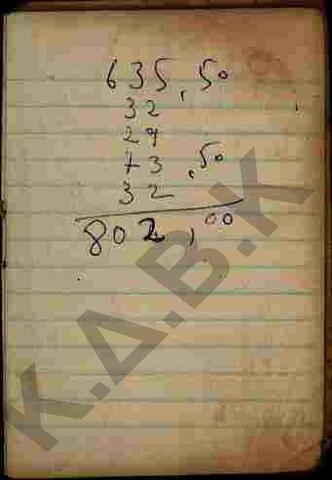 635,50
32
29
73,50
32
802,00
Κ.Δ.Β.Κ